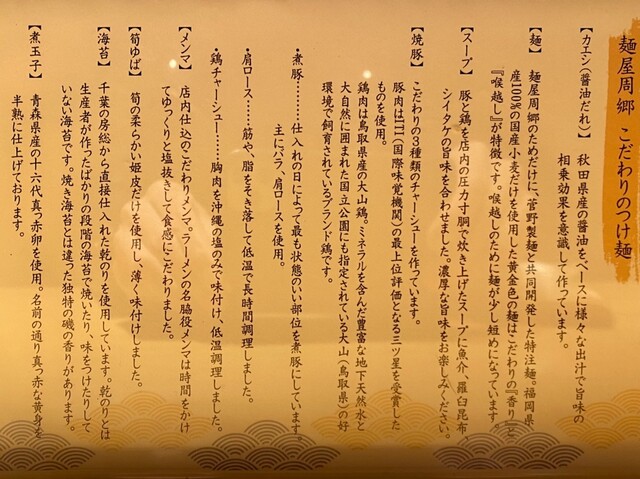 麺屋周郷 こだわりのつけ麺
【カエシ（醤油だれ）】 秋田県産の醤油をベースに様々な出汁で旨味の
相乗効果を意識して作っています。
【麺】 麺屋周郷のためだけに、菅野製麺と共同開発した特注麺。福岡県
産100％の国産小麦だけを使用した黄金色の麺はこだわりの『香り』と
『喉越し』が特徴です。喉越しのために麺が少し短めになっています。
【スープ】 豚と鶏を店内の圧力寸胴で炊き上げたスープに魚介、羅臼昆布、
シイタケの旨味を合わせました。濃厚な旨味をお楽しみください。
【焼豚】 こだわりの3種類のチャーシューを作っています。
豚肉はITI（国際味覚機関）の最上位評価となる三ツ星を受賞した
ものを使用。
鶏肉は鳥取県産の大山鶏。ミネラルを含んだ豊富な地下天然水と
大自然に囲まれた国立公園にも指定されている大山（鳥取県）の好
環境で飼育されているブランド鶏です。
・煮豚………仕入れの日によって最も状態のいい部位を煮豚にしています。
主にバラ、肩ロースを使用。
・肩ロース………筋や、脂をそぎ落して低温で長時間調理しました。
・鶏チャーシュー……胸肉を沖縄の塩のみで味付け、低温調理しました。
【メンマ】 店内仕込のこだわりメンマ。ラーメンの名脇役メンマは時間をかけ
てゆっくりと塩抜きして食感にこだわりました。
【筍ゆば】 筍の柔らかい姫皮だけを使用し、薄く味付けしました。
【海苔】 千葉の房総から直接仕入れた乾のりを使用しています。乾のりとは
生産者が作ったばかりの段階の海苔で焼いたり、味をつけたりして
いない海苔です。焼き海苔とは違った独特の磯の香りがあります。
【煮玉子】 青森県産の十六代真っ赤卵を使用。名前の通り真っ赤な黄身を
半熟に仕上げております。